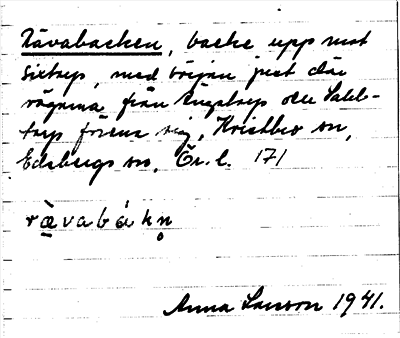 Rävabacken, backe upp mot
Sixtorp, med början just där
vägarna från Ängstorp och Sakb-
torp förena sig, Kristbro sn,
Edsbergs sn, Ör. l. 171
rävabákn
Anna Larsson 1941.